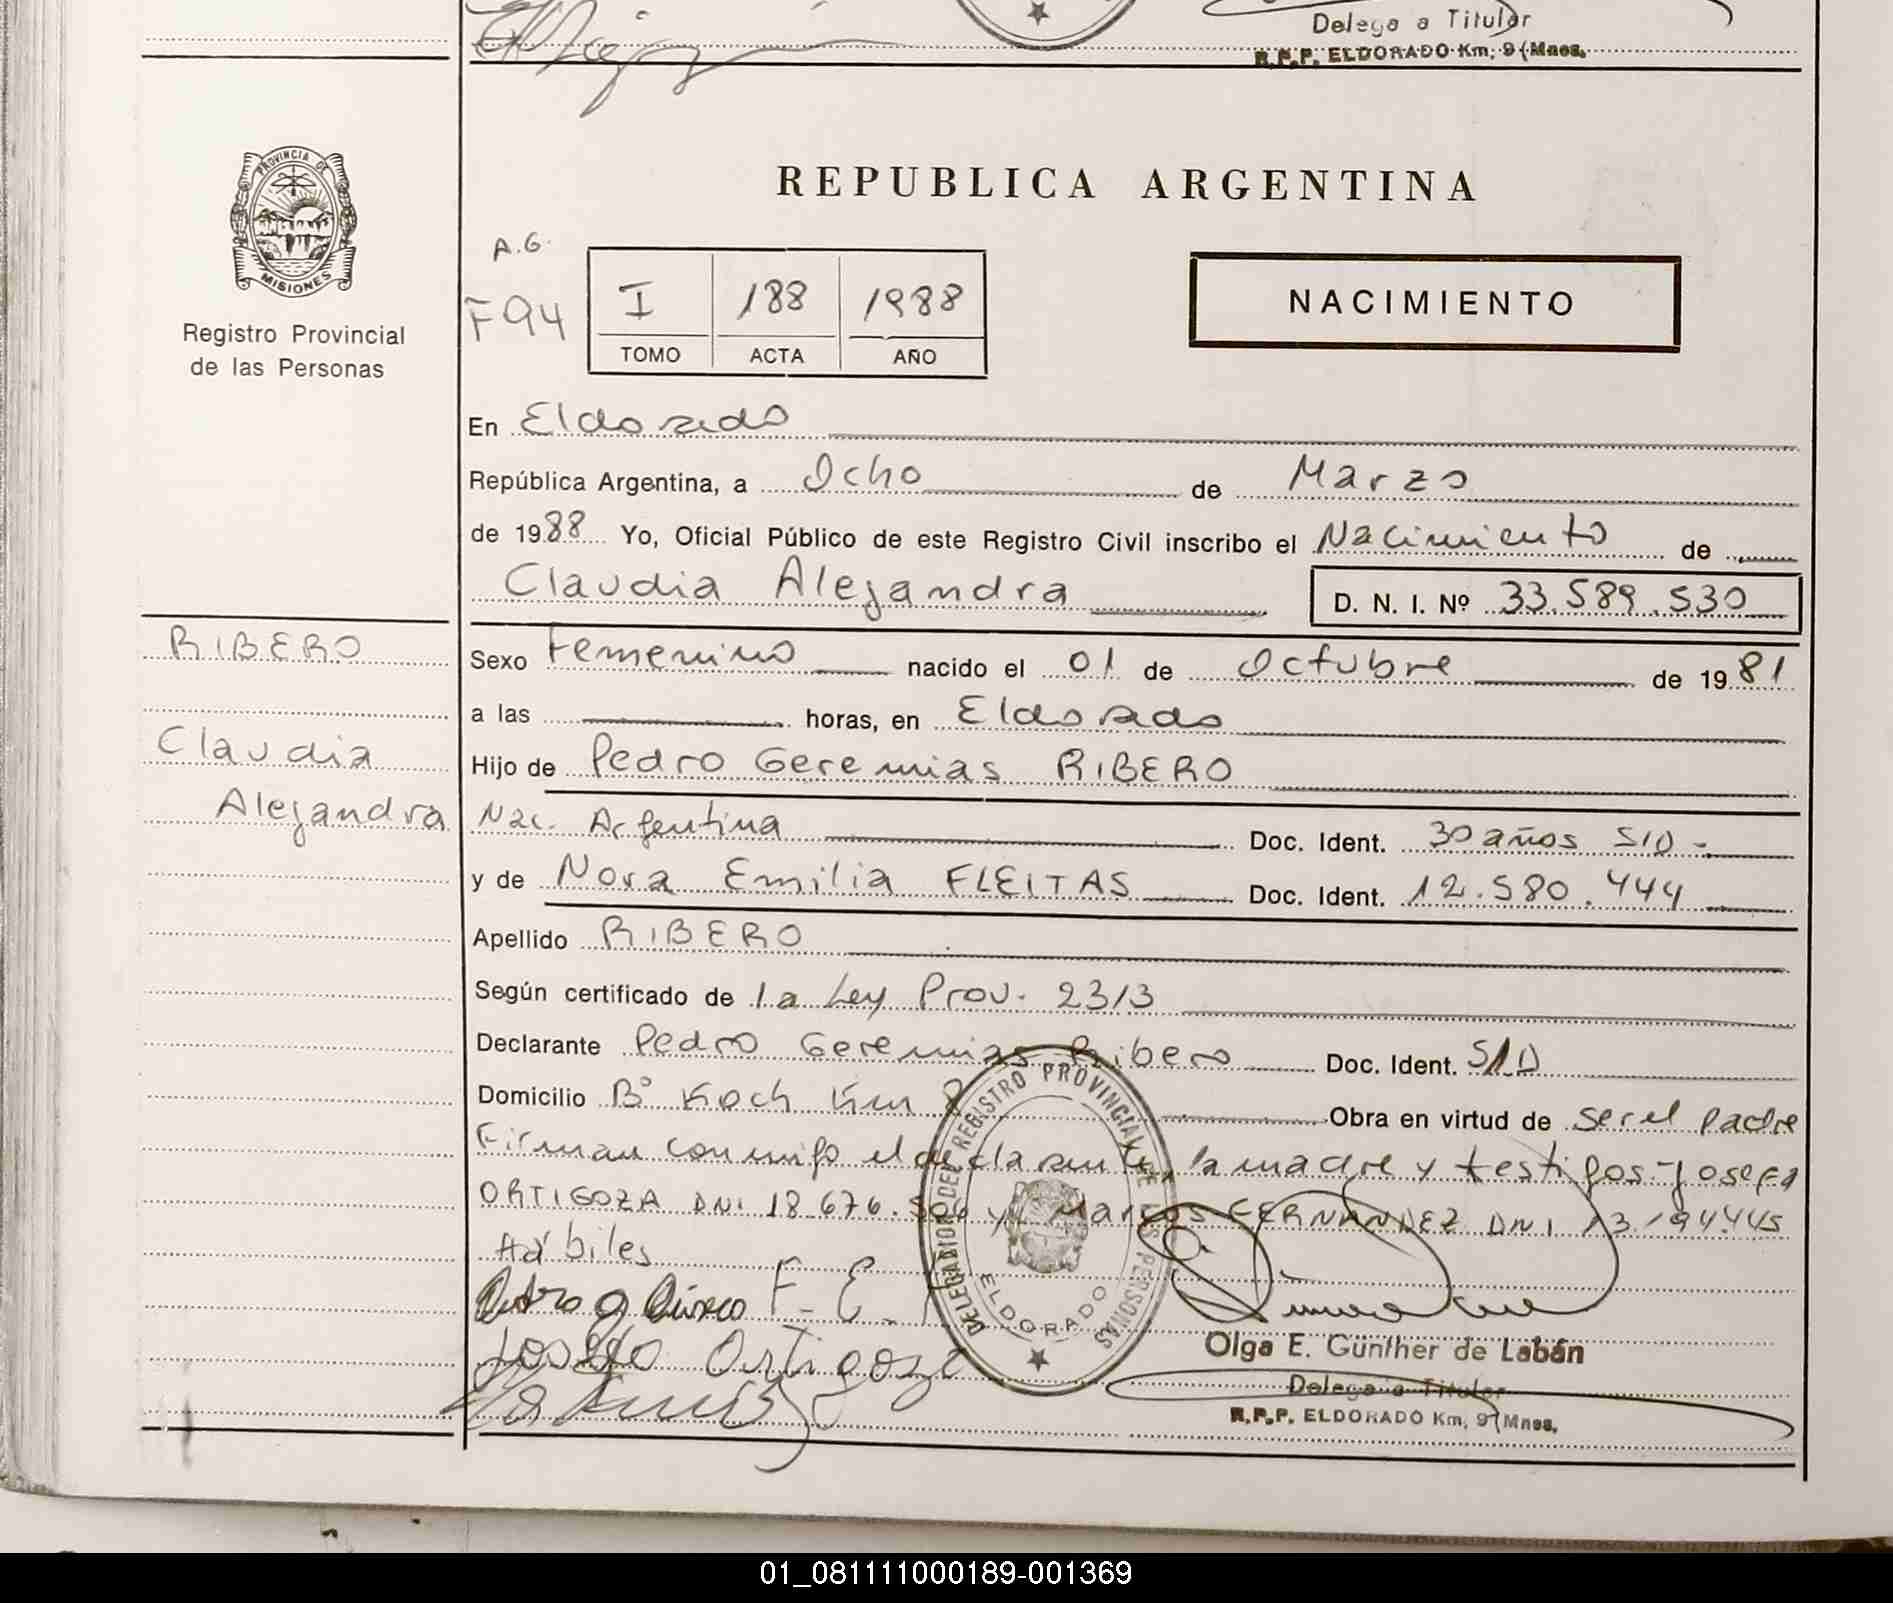 Delega a Titular
R.P.P. ELDORADO Km. 9 (Mnes.
PROVINCIA DE
MISIONES
Registro Provincial
de las Personas
REPUBLICA ARGENTINA
A.G.
F94
I 188 1988
TOMO ACTA AÑO
NACIMIENTO
En Eldorado
República Argentina, a Ocho de Marzo
de 1988 Yo, Oficial Público de este Registro Civil inscribo el Nacimiento de
Claudia Alejandra D. N. I. Nº 33.589.530
RIBERO
Claudia
Alejandra
Sexo Femenino nacido el 01 de Octubre de 1981
a las horas, en Eldorado
Hijo de Pedro Geremias RIBERO
Nac. Argentina Doc. Ident. 30 años S/D -
y de Nora Emilia FLEITAS Doc. Ident. 12.580.444
Apellido RIBERO
Según certificado de la Ley Prov. 2313
Declarante Pedro Geremias Ribero Doc. Ident. S/D
Domicilio Bº Koch Km Obra en virtud de ser el padre
Firman conmigo el declarante, la madre y testigos - Josefa
ORTIGOZA DNI 18.676.506 y Marcos FERNANDEZ DNI 13.194.445
Hábiles
F. E.
Ortigoza
DELEGACION DEL REGISTRO PROVINCIAL DE LAS PERSONAS
ELDORADO
Olga E. Günther de Labán
Delega a Titular
R.P.P. ELDORADO Km. 9 (Mnes.
01_081111000189-001369